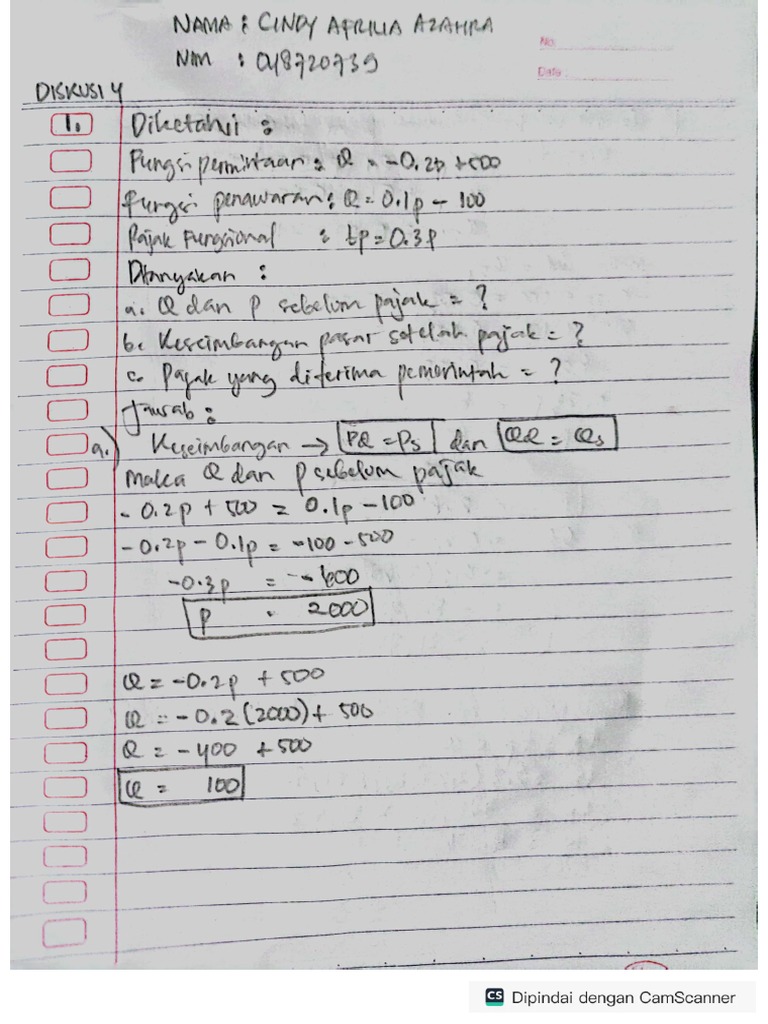 NAMA : CINDY AFRILIA AZAHRA
NIM : 048720739
No.
Date
DISKUSI 4
1. Diketahui :
Fungsi permintaan : Q = -0.2p + 500
Fungsi penawaran : Q = 0.1p - 100
Pajak Fungsional : tp = 0.3p
Ditanyakan :
a. Q dan p sebelum pajak = ?
b. Keseimbangan pasar setelah pajak = ?
c. Pajak yang diterima pemerintah = ?
Jawab :
a.) Keseimbangan → PQ = Ps dan QQ = Qs
Maka Q dan p sebelum pajak
-0.2p + 500 = 0.1p - 100
-0.2p - 0.1p = -100 - 500
-0.3p = -600
p = 2000
Q = -0.2p + 500
Q = -0.2 (2000) + 500
Q = -400 + 500
Q = 100
CS Dipindai dengan CamScanner